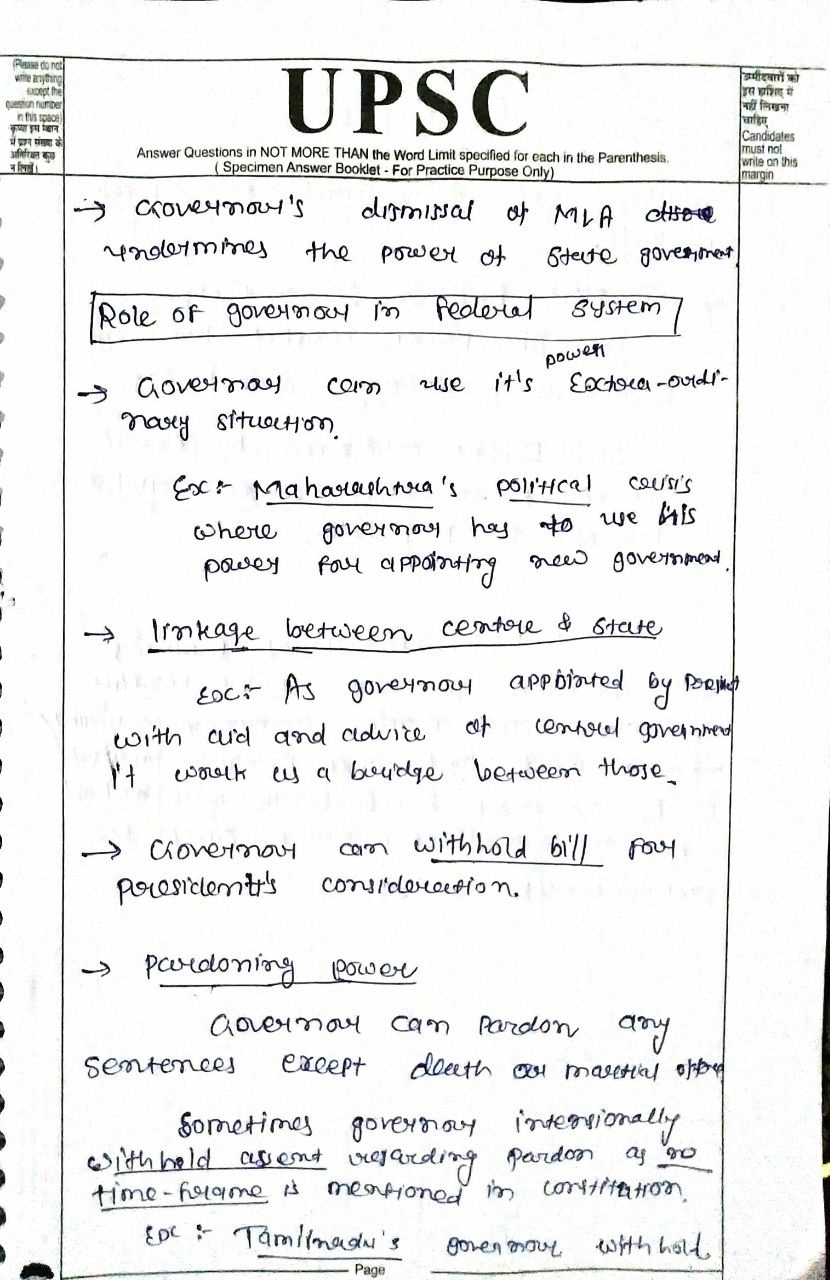 (Please do not
write anything
except the
question number
in this space)
कृपया इस स्थान
में प्रश्न संख्या के
अतिरिक्त कुछ
न लिखें।
UPSC
Answer Questions in NOT MORE THAN the Word Limit specified for each in the Parenthesis.
( Specimen Answer Booklet - For Practice Purpose Only)
उम्मीदवारों को
इस हाशिए में
नहीं लिखना
चाहिए
Candidates
must not
write on this
margin
→ Governor's dismissal of MLA
undermines the power of State government.
Role of governor in Federal System
power
→ Governor can use it's Extra-ordi-
nary situation.
Ex:- Maharashtra's political crisis
where governor has to use his
power for appointing new government.
→ linkage between centre & state
Ex:- As governor appointed by
with aid and advice of central government
it work as a bridge between those.
→ Governor can withhold bill for
President's consideration.
→ Pardoning power
Governor can pardon any
sentences except death or martial
Sometimes governor intensionally
withhold assent regarding pardon as no
time-frame is mentioned in constitution.
Ex :- Tamilnadu's governor withhold
Page